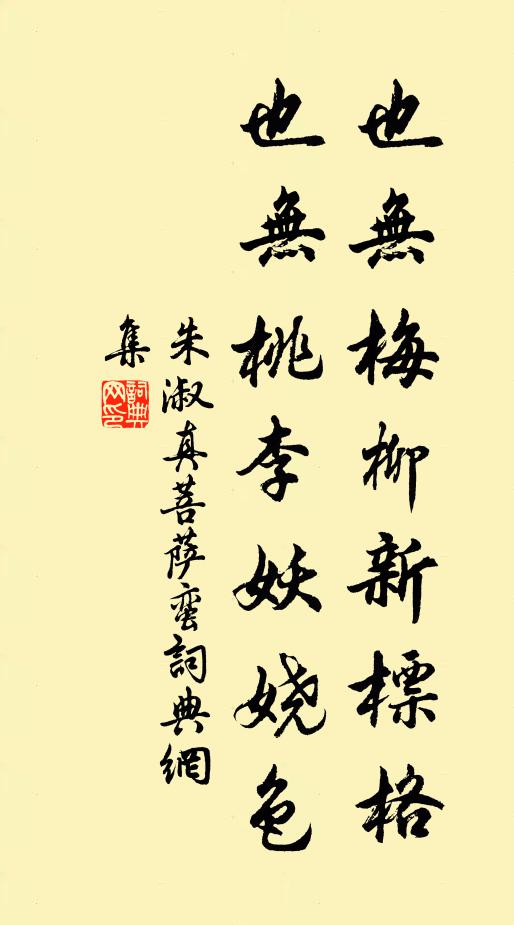 也無梅柳新標格
也無桃李妖嬈色
朱淑真菩薩蠻詞典網
集
詞典
网印